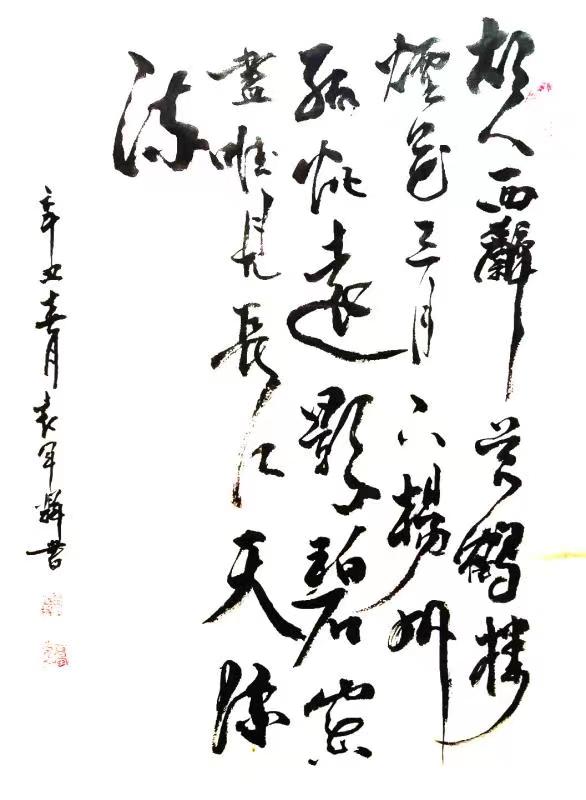 故人西辭黄鶴樓
煙花三月下揚州
孤帆遠影碧空
盡唯見長江天際
流
辛丑月袁军辉書